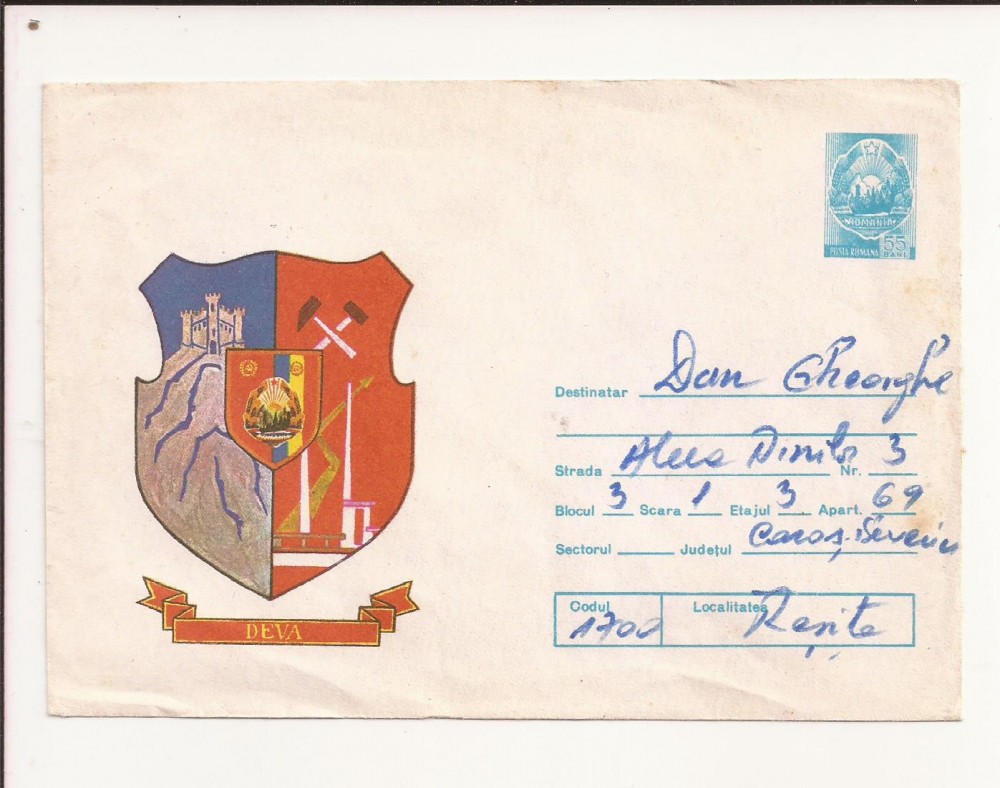 ROMANIA
POSTA ROMANA 55 BANI
Destinatar Dan Gheorghe
Strada Aleea Nr. 3
Blocul 3 Scara 1 Etajul 3 Apart. 69
Sectorul Județul Caraș-Severin
Codul Localitatea
1700 Reșița
DEVA